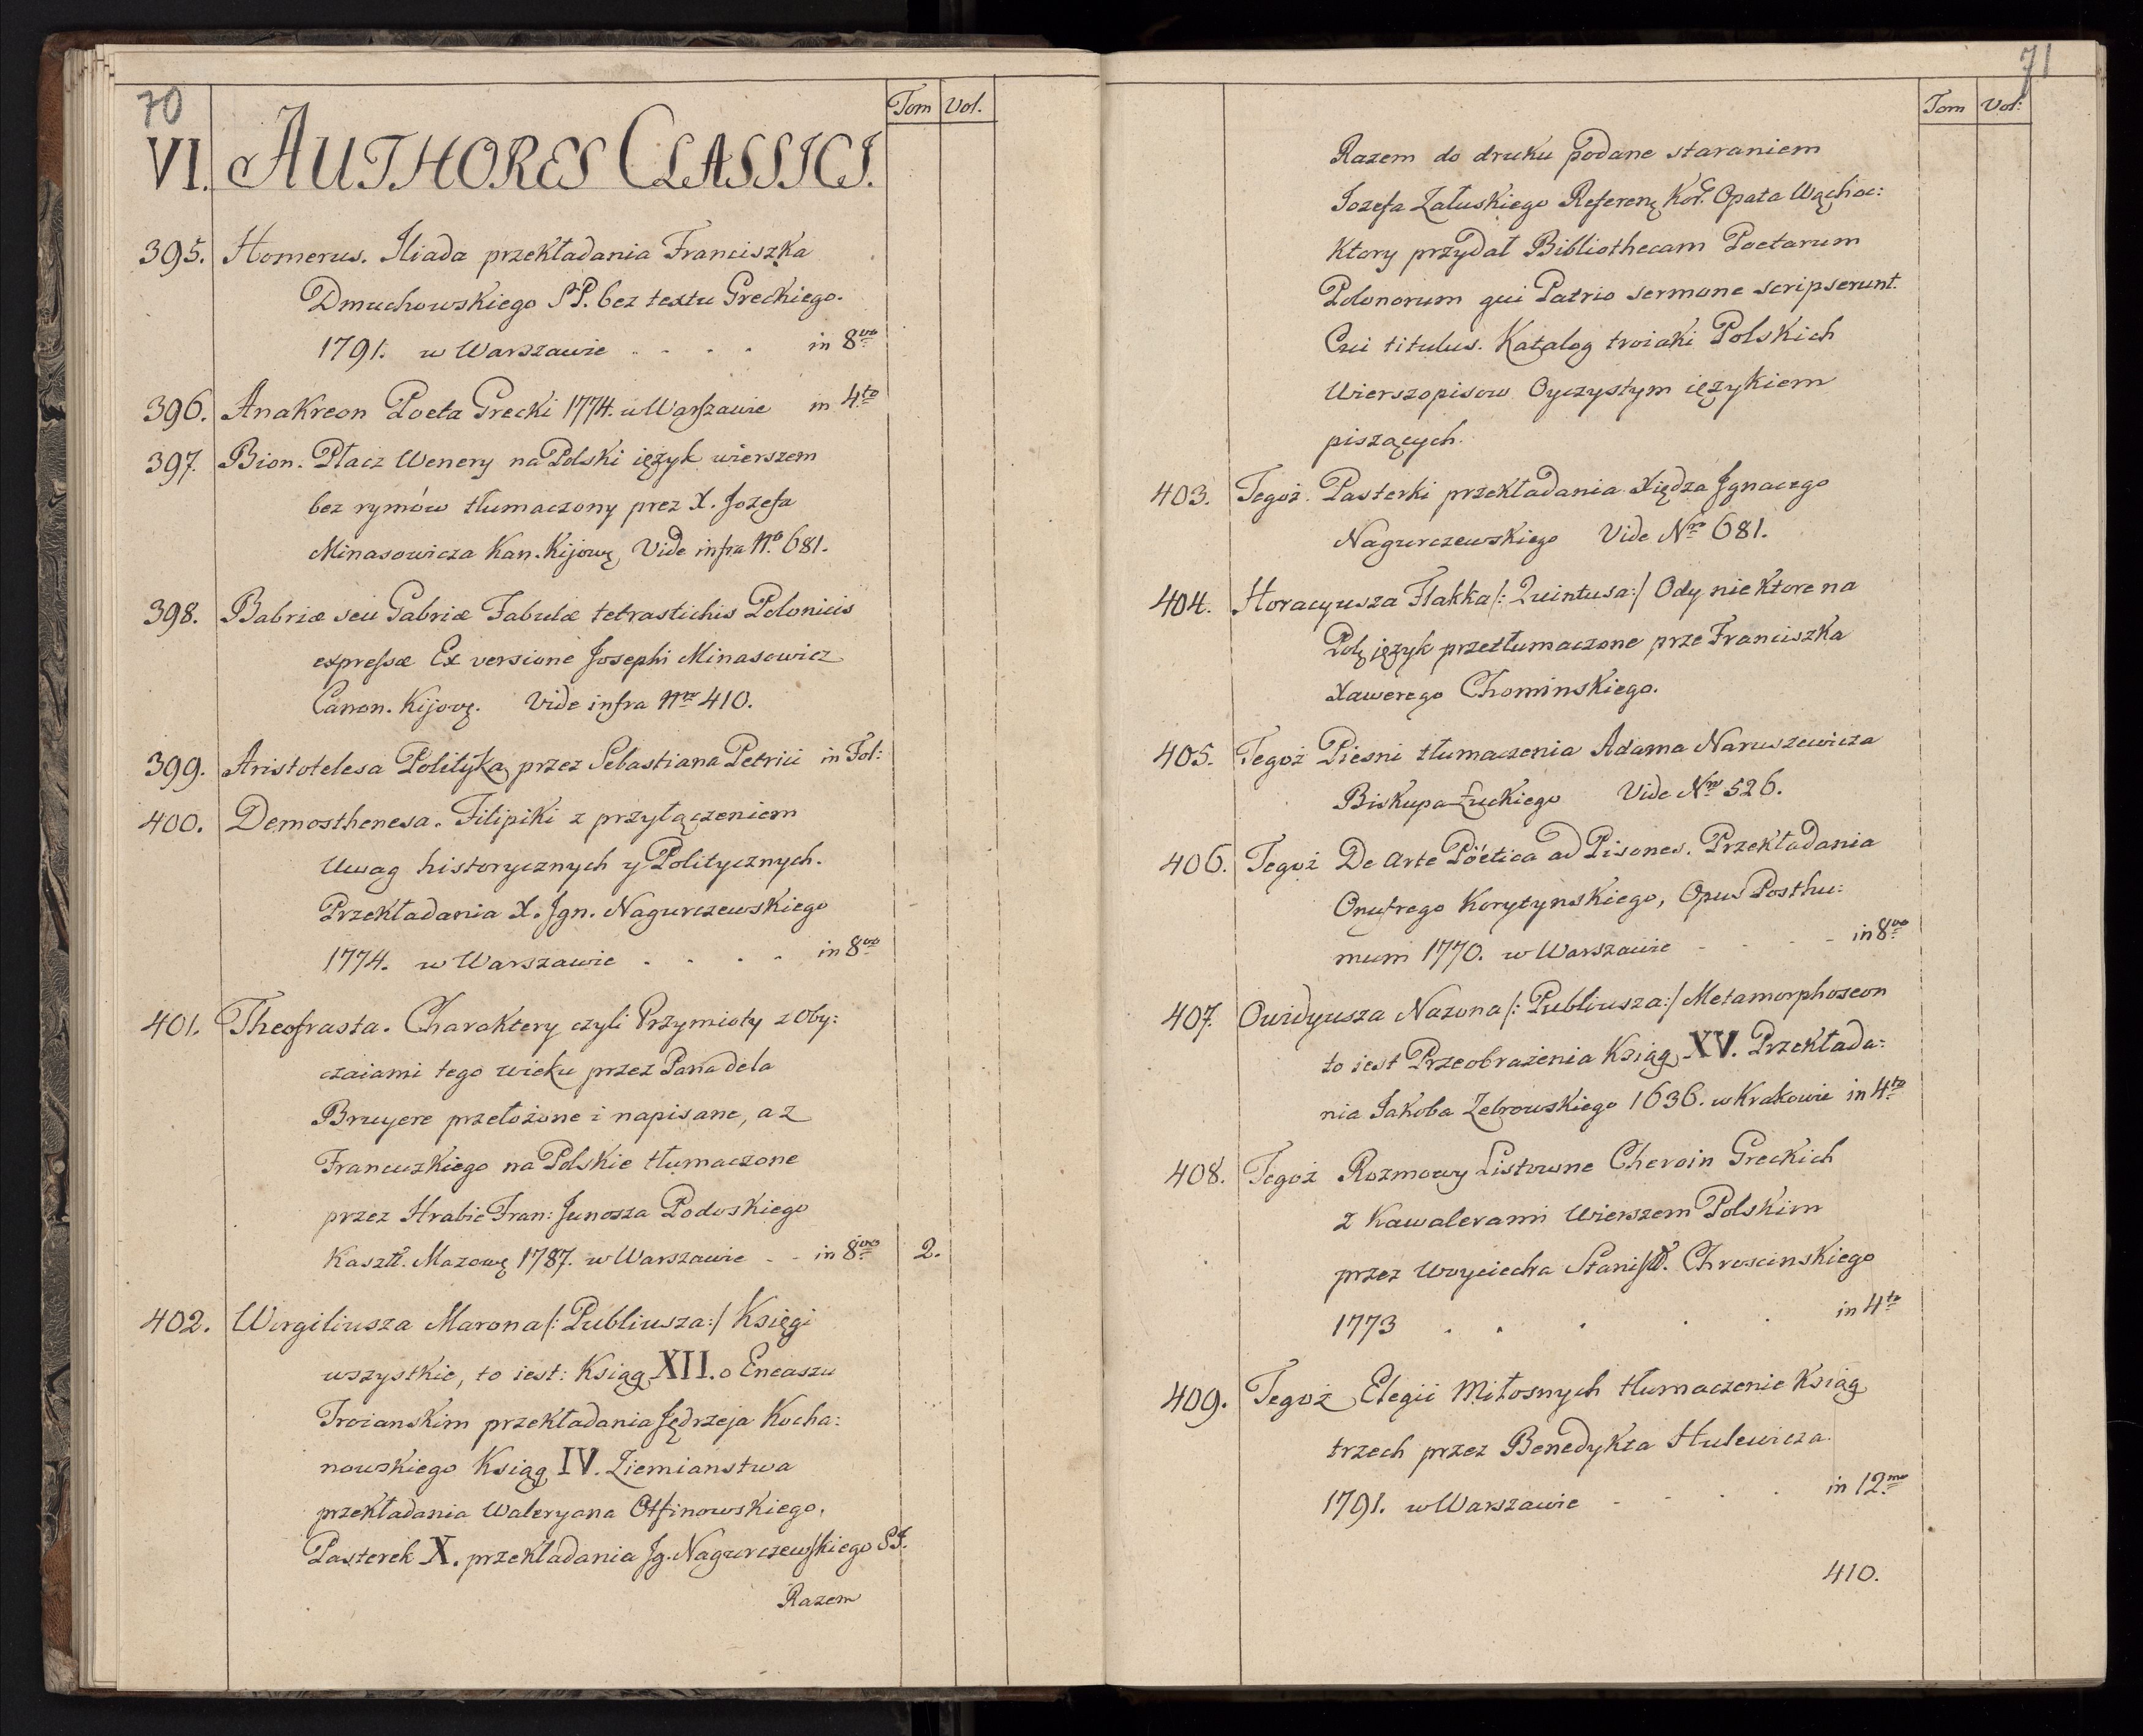 70
Tom Vol.
VI. AUTHORES CLASSICI.
395. Homerus. Iliada przekładania Franciszka
Dmuchowskiego S.P. bez textu Greckiego.
1791. w Warszawie . . . . in 8vo
396. Anakreon Poeta Grecki 1774. w Warszawie in 4to
397. Bion. Płacz Wenery na Polski ięzyk wierszem
bez rymów tłumaczony prez X. Jozefa
Minasowicza Kan. Kijowę, Vide infra Nro 681.
398. Babriæ seu Gabriæ Fabulæ tetrastichis Polonicis
expressæ Ex versione Josephi Minasowicz
Canon. Kijovę. Vide infra Nro 410.
399. Aristotelesa Polityka przez Sebastiana Petrici in Fol:
400. Demosthenesa. Filipiki z przyłączeniem
Uwag historycznych y Politycznych.
Przekładania X. Ign. Nagurczewskiego
1774. w Warszawie . . . . in 8vo
401. Theofrasta. Charaktery czyli Przymioty z Oby:
czaiami tego wieku przez Pana dela
Bruyere przełożone i napisane, a z
Francuzkiego na Polskie tłumaczone
przez Hrabie Fran: Junosza Podoskiego
Kasztł. Mazowę 1787. w Warszawie . . in 8vo 2.
402. Wirgiliusza Marona /: Publiusza :/ Księgi
wszystkie, to iest: Ksiąg XII. o Eneaszu
Troianskim przekładania Jędrzeja Kocha:
nowskiego Ksiąg IV. Ziemianstwa
przekładania Waleryana Otfinowskiego,
Pasterek X. przekładania Jg. Nagurczewskiego SJ.
Razem
71
Tom Vol:
Razem do druku podane staraniem
Iozefa Załuskiego Referenę Kor. Opata Wąchoc:
Ktory przydał Bibliothecam Poetarum
Polonorum qui Patrio sermone scripserunt.
Cui titulus. Katalog troiaki Polskich
Wierszopisow Oyczystym ięzykiem
piszących.
403. Tegoż. Pasterki przekładania Xiędza Jgnacego
Nagurczewskiego Vide Nro 681.
404. Horacyusza Flakka /: Quintusa :/ Ody nie ktore na
Polę język przetłumaczone prze Franciszka
Xawerego Chominskiego.
405. Tegoż Piesni tłumaczenia Adama Naruszewicza
Biskupa Łuckiego Vide Nro 526.
406. Tegoż De Arte Pöetica ad Pisones. Przekładania
Onufrego Korytynskiego, Opus Posthu:
mum 1770. w Warszawie - - - - in 8vo
407. Owidyusza Nazona /: Publiusza :/ Metamorphoseon
to iest Przeobrażenia Ksiąg XV. Przekłada:
nia Iakoba Zebrowskiego 1636. w Krakowie in 4to
408. Tegoż Rozmowy Listowne Cheroin Greckich
z Kawalerami Wierszem Polskim
przez Woyciecha Stanisł. Chroscinskiego
1773 . . . . . in 4to
409. Tegoż Elegii Miłosnych tłumaczenie Ksiąg
trzech przez Benedykta Hulewicza.
1791. w Warszawie - - . . in 12mo
410.